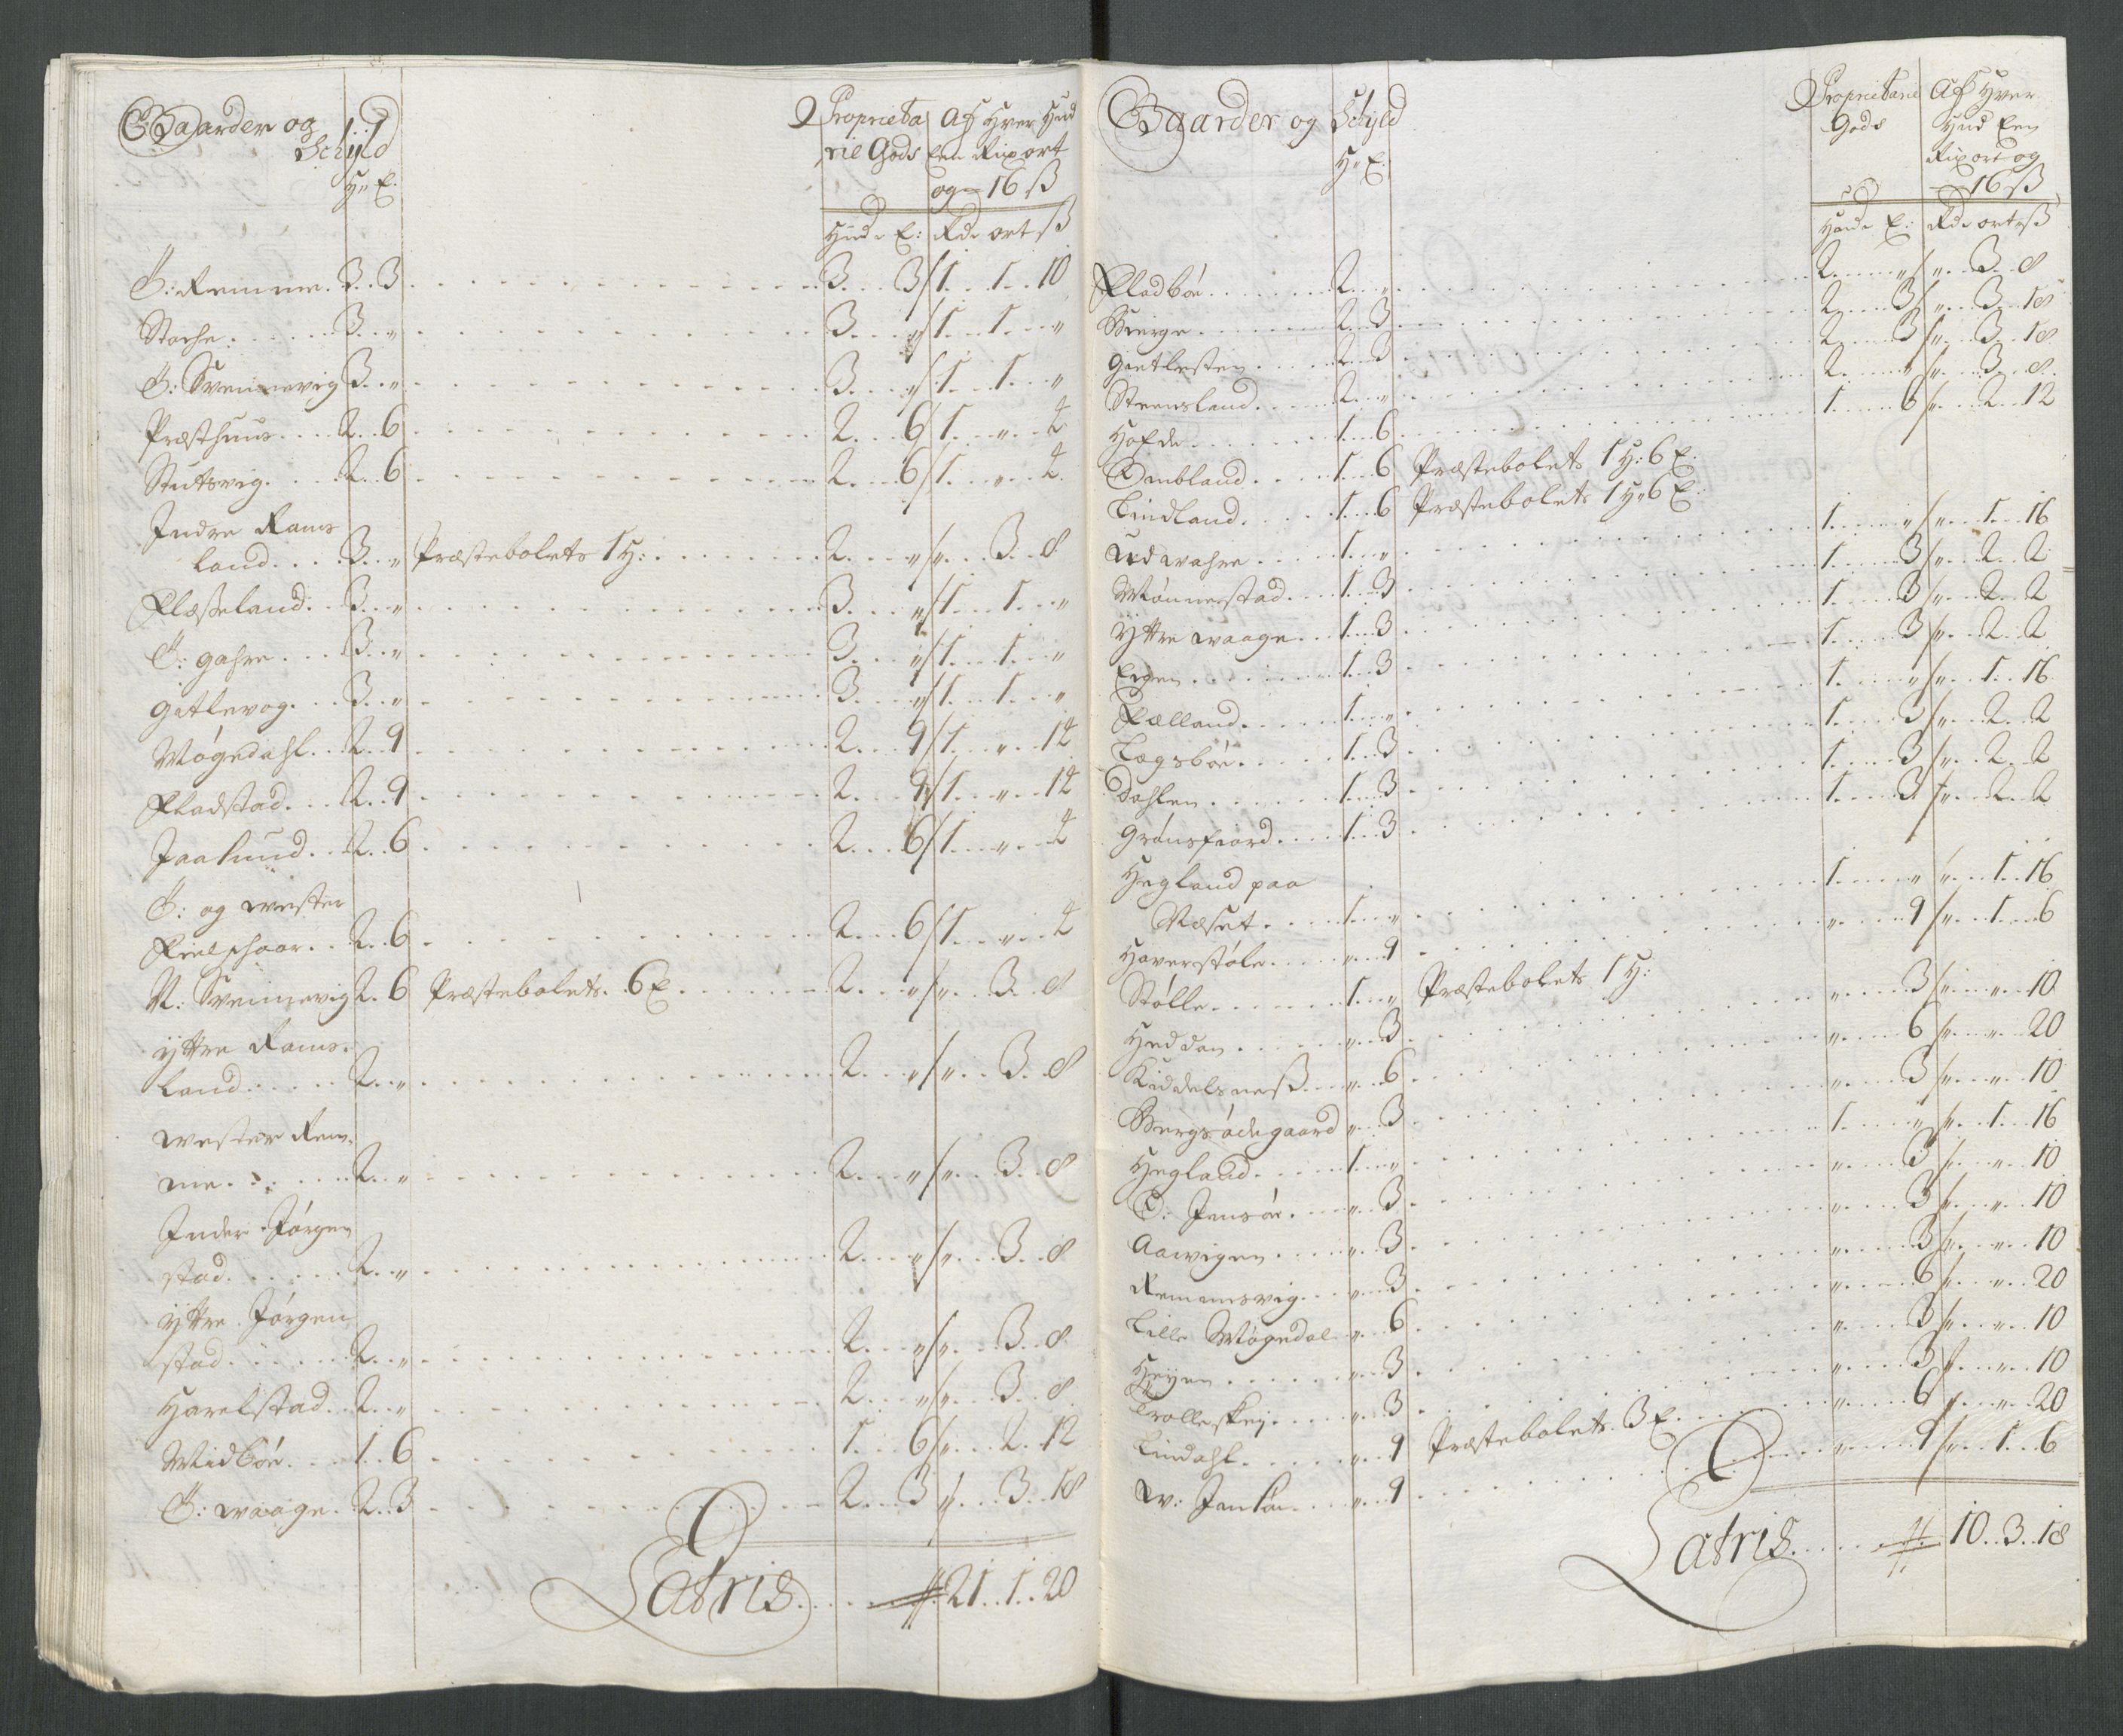 Gaarder og
Schyld
H: E.
Proprieta
rie Gods
Hud: E:
Af Hver Hud
Een Rixort
og 16 ß
Rd: ort ß
Ö: Remme . 3 . 3 . 3 . 3 / 1 . 1 . 10
Stoche . 3 . „ . 3 . „ / 1 . 1 . „
Ö: Svennevig 3 . „ . 3 . „ / 1 . 1 . „
Præsthuus . 2 . 6 . 2 . 6 / 1 . „ . 4
Stutsvig . 2 . 6 . 2 . 6 / 1 . „ . 4
Indre Rams
land . 3 . „ Præstebolets 1 H: . 2 . „ / „ . 3 . 8
Flæseland . 3 . „ . 3 . „ / 1 . 1 . „
Ö: gahre . 3 . „ . 3 . „ / 1 . 1 . „
Gitlevog . 3 . „ . 3 . „ / 1 . 1 . „
Møgedahl . 2 . 9 . 2 . 9 / 1 . „ . 14
Fladstad . 2 . 9 . 2 . 9 / 1 . „ . 14
Jaasund . 2 . 6 . 2 . 6 / 1 . „ . 4
Ö: og wester
Fielschaar . 2 . 6 . 2 . 6 / 1 . „ . 4
N: Svennevig 2 . 6 Præstebolets . 6 E . 2 . „ / „ . 3 . 8
Yttre Rams
land . 2 . „ . 2 . „ / „ . 3 . 8
wester Rem
me . 2 . „ . 2 . „ / „ . 3 . 8
Inder Jörgen
stad . 2 . „ . 2 . „ / „ . 3 . 8
Yttre Jörgen
stad . 2 . „ . 2 . „ / „ . 3 . 8
Harelstad . 2 . „ . 2 . „ / „ . 3 . 8
Midbøe . 1 . 6 . 1 . 6 / „ . 2 . 12
Ö: waage . 2 . 3 . 2 . 3 / „ . 3 . 18
Latris . 21 . 1 . 20
Gaarder og Schyld
H: E.
Proprietarie
Gods
Hud: E:
Af Hver
Hud Een
Rixort og
16 ß
Rd: ort ß
Fladbøe . 2 . „ . 2 . „ / „ . 3 . 8
Berge . 2 . 3 . 2 . 3 / „ . 3 . 18
Gietlesten . 2 . 3 . 2 . 3 / „ . 3 . 18
Steensland . 2 . „ . 2 . „ / „ . 3 . 8
Hofde . 1 . 6 . 1 . 6 / „ . 2 . 12
Ombland . 1 . 6 Præstebolets 1 H: 6 E.
Lindland . 1 . 6 Præstebolets 1 H: 6 E:
Udwahre . 1 . „ . 1 . „ / „ . 1 . 16
Mönnestad . 1 . 3 . 1 . 3 / „ . 2 . 2
Yttre waage . 1 . 3 . 1 . 3 / „ . 2 . 2
Eigen . 1 . 3 . 1 . 3 / „ . 2 . 2
Fælland . 1 . „ . 1 . „ / „ . 1 . 16
Lægsbøe . 1 . 3 . 1 . 3 / „ . 2 . 2
Dahlen . 1 . 3 . 1 . 3 / „ . 2 . 2
Grønsfiord . 1 . 3 . 1 . 3 / „ . 2 . 2
Hegland paa
Næset . 1 . „ . 1 . „ / „ . 1 . 16
Haverstøle . „ . 9 . „ . 9 / „ . 1 . 6
Stølle . 1 . „ Præstebolets 1 H:
Heddan . „ . 3 . „ . 3 / „ . „ . 10
Kiddelsness . „ . 6 . „ . 6 / „ . „ . 20
Bergsødegaard „ . 3 . „ . 3 / „ . „ . 10
Hegland . 1 . „ . 1 . „ / „ . 1 . 16
O: Jensøe . „ . 3 . „ . 3 / „ . „ . 10
Aawigen . „ . 3 . „ . 3 / „ . „ . 10
Remmesvig . „ . 3 . „ . 3 / „ . „ . 10
Lille Møgedal „ . 6 . „ . 6 / „ . „ . 20
Heyen . „ . 3 . „ . 3 / „ . „ . 10
Trolleskej . „ . 3 . „ . 3 / „ . „ . 10
Lindahl . „ . 9 Præstebolets . 3 E . „ . 6 / „ . „ . 20
W: Jensøe . „ . 9 . „ . 9 / „ . 1 . 6
Latris . 10 . 3 . 18